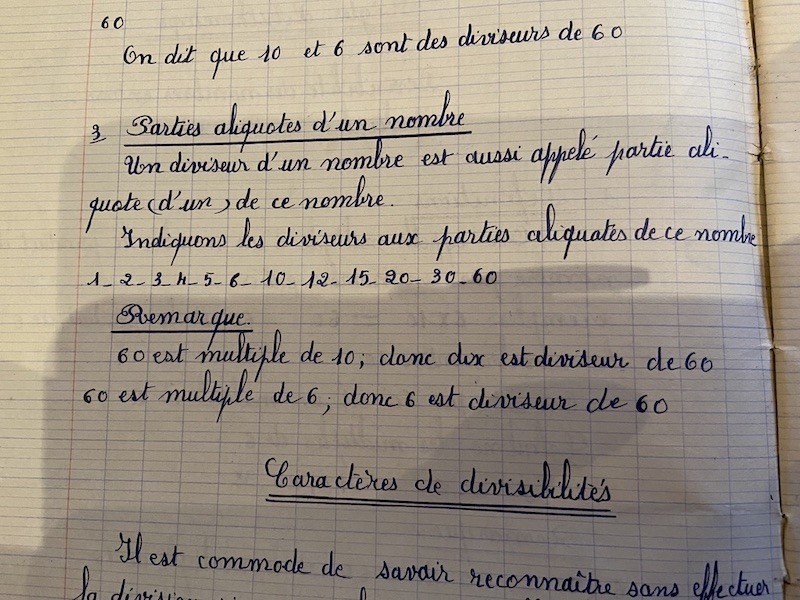 60
On dit que 10 et 6 sont des diviseurs de 60
3 Parties aliquotes d'un nombre
Un diviseur d'un nombre est aussi appelé partie ali-
quote (d'un) de ce nombre.
Indiquons les diviseurs aux parties aliquates de ce nombre
1_ 2_ 3_ 4_ 5_ 6_ 10_ 12_ 15_ 20_ 30_ 60
Remarque.
60 est multiple de 10; donc dix est diviseur de 60
60 est multiple de 6; donc 6 est diviseur de 60
Caractères de divisibilités
Il est commode de savoir reconnaître sans effectuer
la division